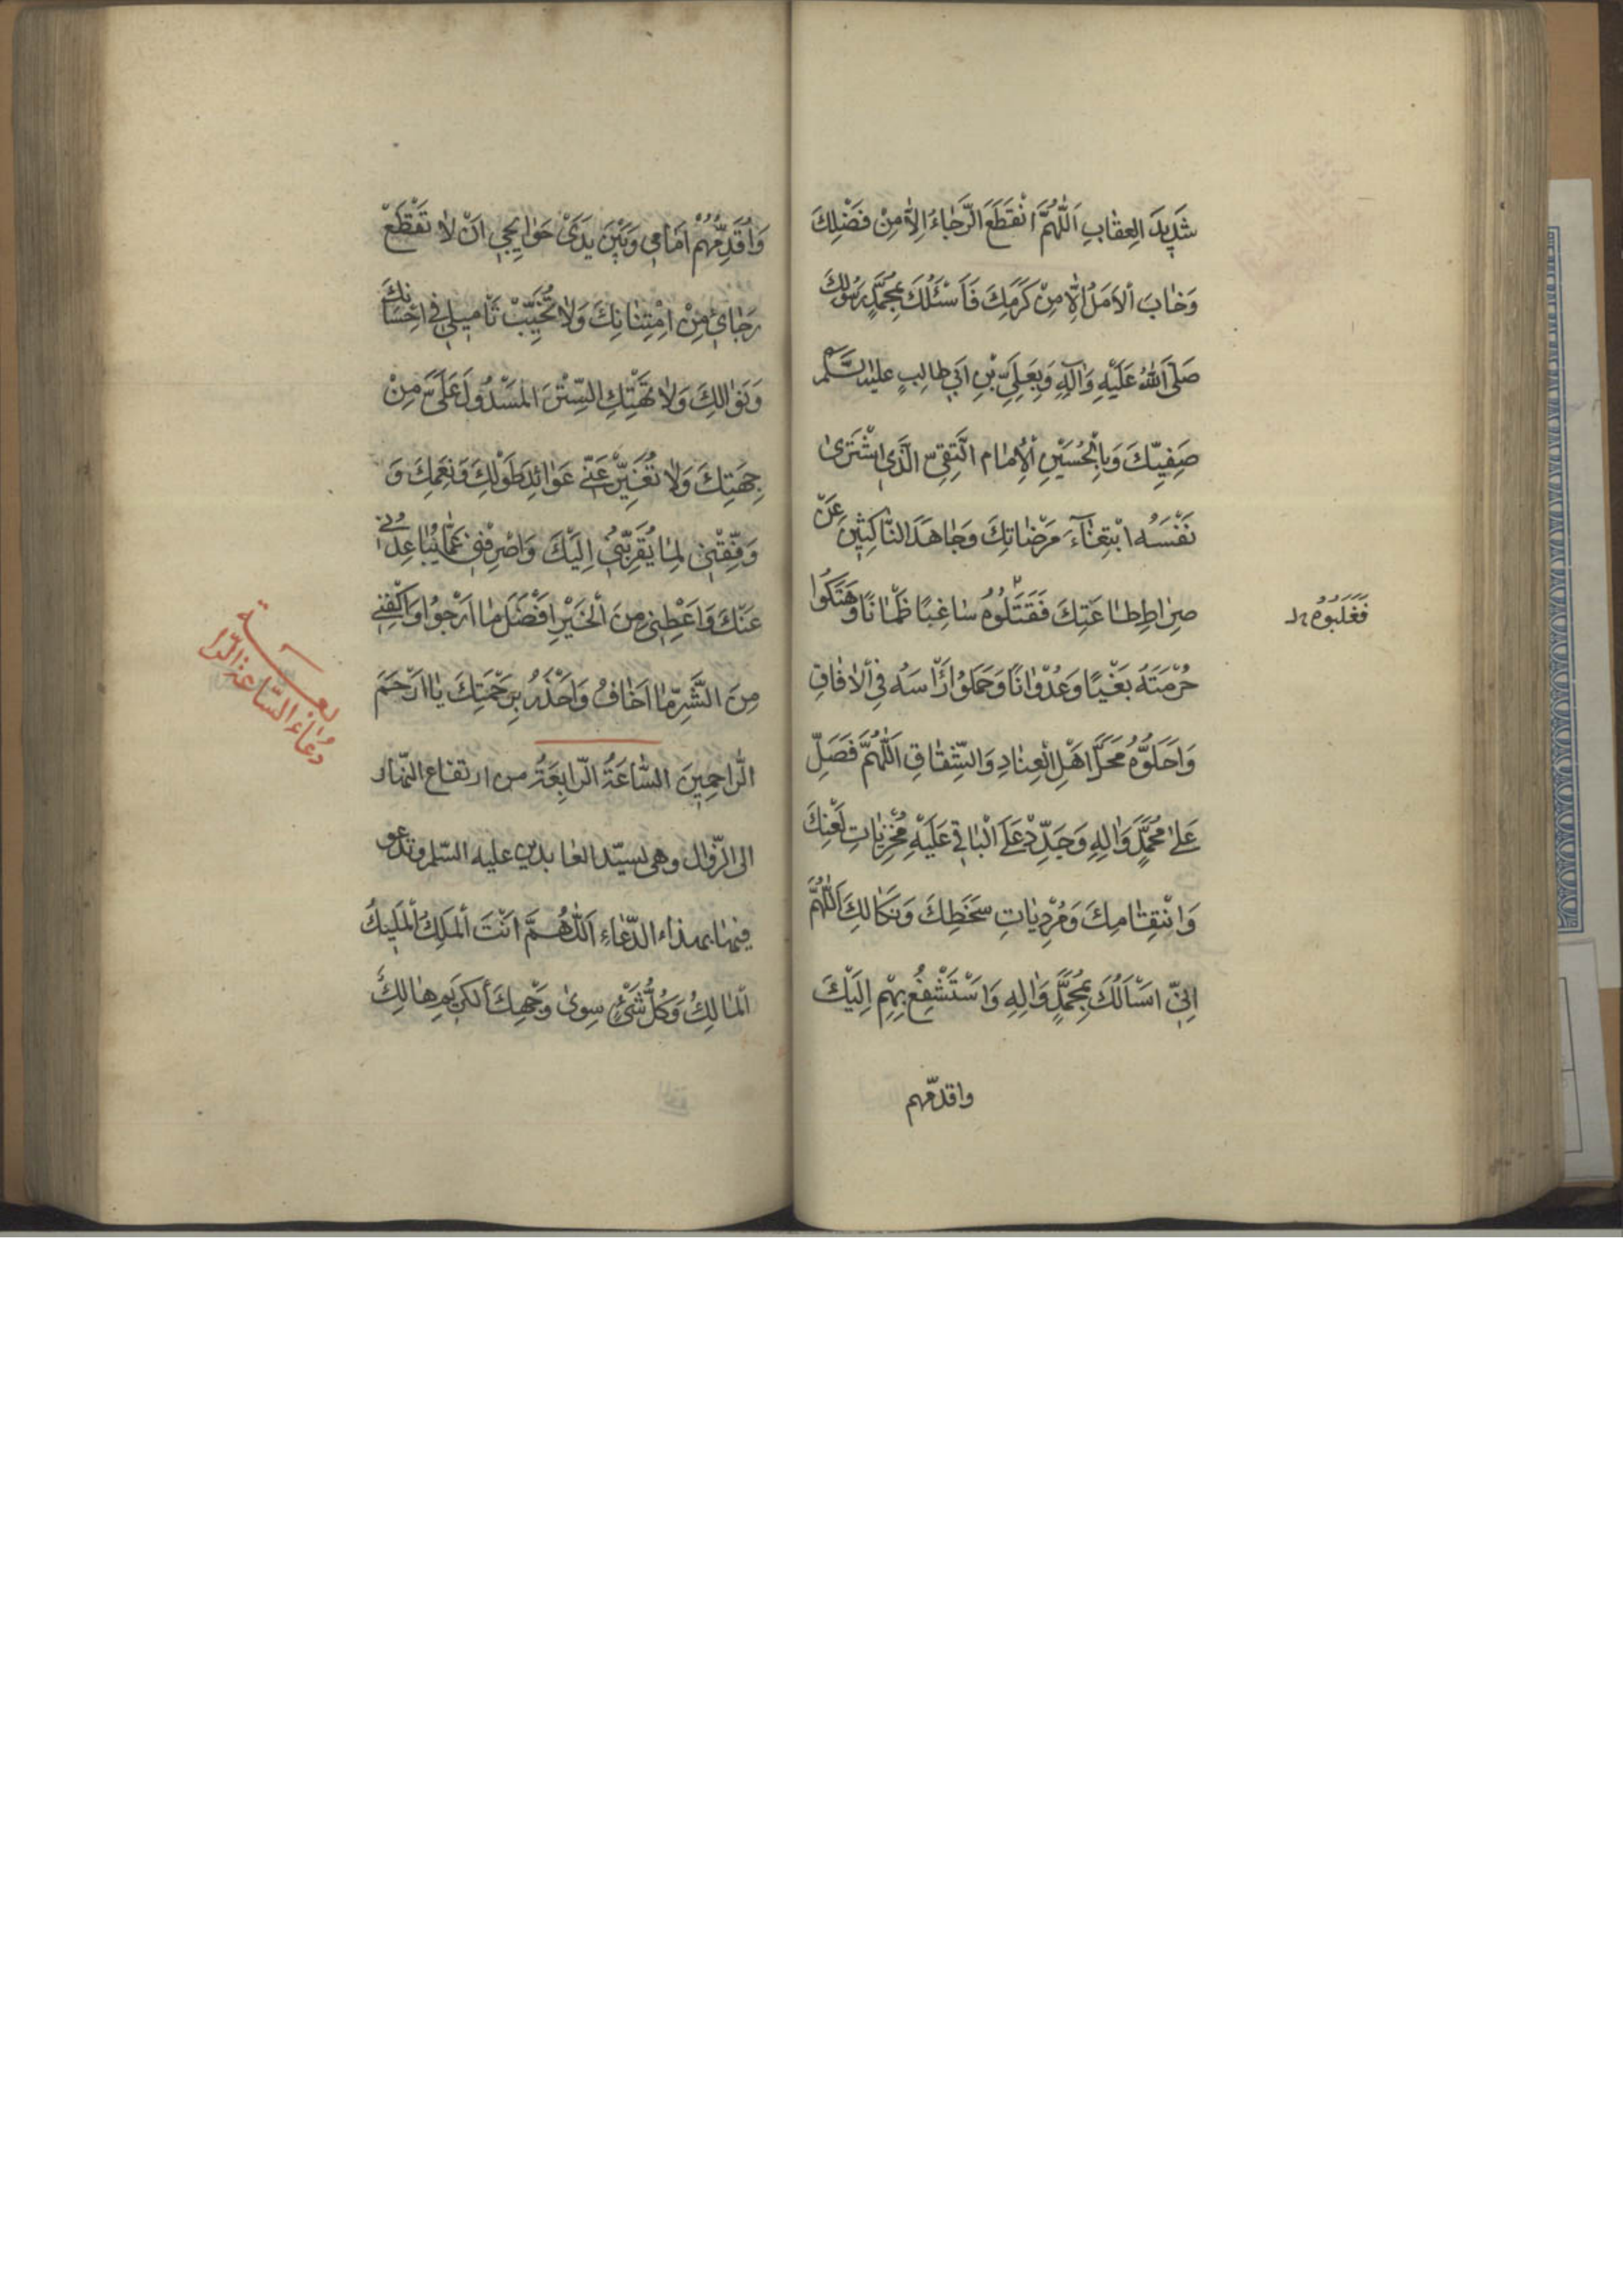 شَدِيدَ العِقٰابِ اَللّٰهُمَّ انْقَطَعَ الرَّجٰاءُ اِلاّٰ مِنْ فَضْلِكَ
وَخٰابَ اْلاَمَلُ اِلاّٰ مِنْ كَرَمِكَ فَاَسْئَلُكَ بِمُحَمَّدٍ رَسُولِكَ
صَلَّى اللهُ عَلَيْهِ وَآلِهِ وَبِعَلِىِّ بْنِ اَبي طالِبٍ عليه السَّلم
صَفِيِّكَ وَبِالْحُسَيْنِ اْلاِمٰام التَّقِىِّ الَّذِي اشْتَرىٰ
نَفْسَهُ ابْتِغٰآءَ مَرْضٰاتِكَ وَجٰاهَدَ النّٰاكِثِينَ عَنْ
صِرٰاطِ طٰاعَتِكَ فَقَتَلُوُهُ سٰاغِبًا ظَمْاٰنًا وَهَتَكُوا
فَغَلَبُوُه
حُرْمَتَهُ بَغْيًا وَعُدْوٰانًا وَحَمَلُوا رَأْسَهُ فِي اْلاٰفٰاقِ
وَاَحَلُّوُهُ مَحَلَّ اَهْلِ الْعِنٰادِ وَالشِّقٰاقِ اَللّٰهُمَّ فَصَلِّ
عَلىٰ مُحَمَّدٍ وَاٰلِهِ وَجَدِّدْ عَلَى الْبٰاغي عَلَيْهِ مُخْزِيٰاتِ لَعْنِكَ
وَانْتِقٰامِكَ وَمُرْدِيٰاتِ سَخَطِكَ وَنَكٰالِكَ اَللّٰهُمَّ
اِنّي اَسْاَلُكَ بِمُحَمَّدٍ وَاٰلِهِ وَاَسْتَشْفِعُ بِهِمْ اِلَيْكَ
واقدّمهم
وَاُقَدِّمُهُمْ اَمٰامي وَبَيْنَ يَدَىْ حَوٰايِجي اَنْ لاٰ تَقْطَعَ
رَجٰائي مِنْ اِمْتِنٰانِكَ وَلاٰ تُخَيِّبْ تَاْمِيلي في اِحْسٰانِكَ
وَنَوٰالِكَ وَلاٰ تَهْتِكِ السِّتْرَ المَسْدُولَ عَلَىَّ مِنْ
جِهَتِكَ وَلاٰ تُغَيِّرْ عَنّي عَوٰائِدَ طَوْلِكَ وَنِعَمِكَ وَ
وَفِّقْنِي لِمٰا يُقَرِّبُني اِلَيْكَ وَاصْرِفْني عَمّٰا يُبٰاعِدُني
عَنْكَ وَاَعْطِني مِنَ الْخَيْرِ اَفْضَلَ مٰا اَرْجُوا وَاكْفِني
مِنَ الشَّرِّ مٰا اَخٰافُ وَاَحْذَرُ بِرَحْمَتِكَ يٰا اَرْحَمَ
الرّٰاحِمِينَ السّٰاعَةُ الرّٰابِعَةُ من ارتفاع النّهار
الى الزّوال وهى لسيّد العٰابدين عليه السّلم وتدعو
فيهٰا بهذاء الدّعٰاءِ اَللّٰهُمَّ اَنْتَ الْمَلِكُ اْلمَلِيكُ
اْلمٰالِكُ وَكُلُّ شَىْءٍ سِوىٰ وَجْهِكَ اْلكَرِيمِ هٰالِكٌ
دُعٰاء السّاعة الرّا
بعــة